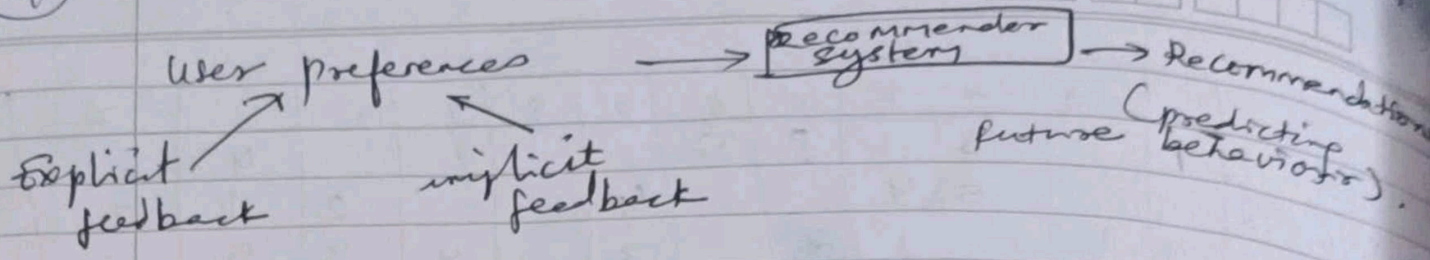 User preferences → Recommender system → Recommendation
(predicting
future behaviour).
Explicit feedback
implicit feedback